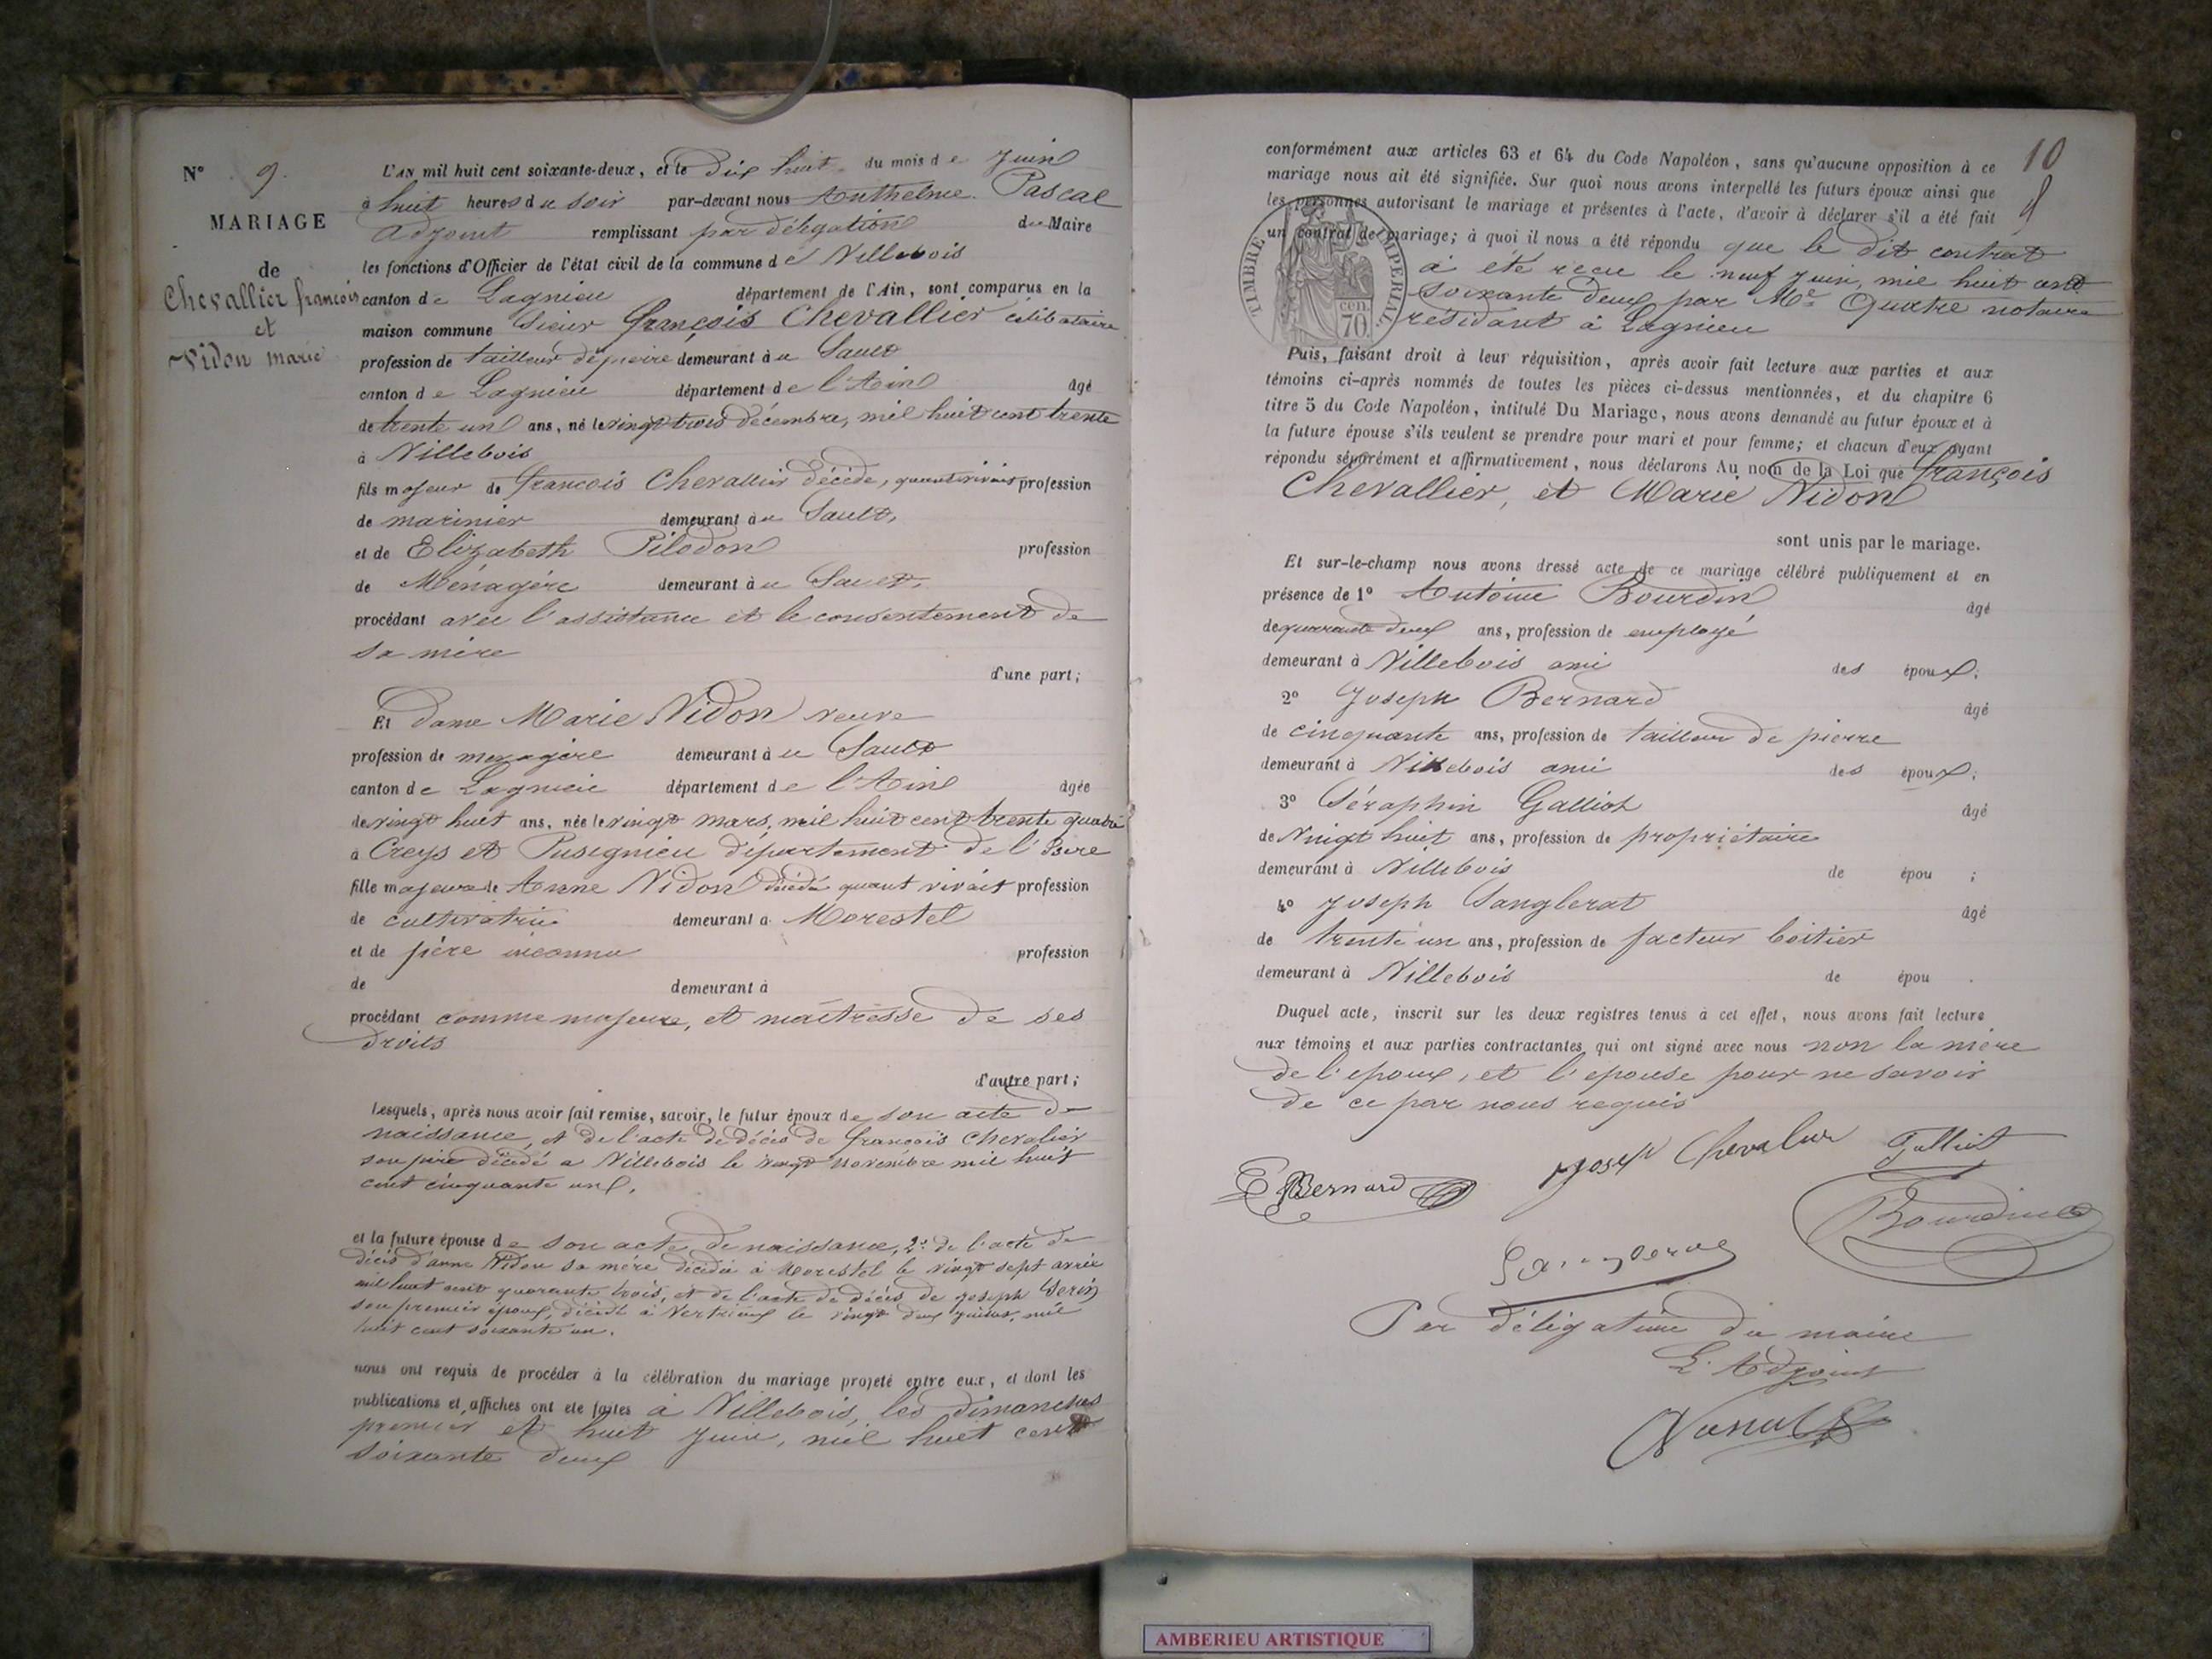 N° 9.
MARIAGE
de
Chevallier françois
et
Vidon marie
L'AN mil huit cent soixante-deux, et le Dix huit du mois de Juin
à huit heures du soir par-devant nous Anthelme Pascal
adjoint remplissant par délégation du Maire
les fonctions d'Officier de l'état civil de la commune de Villebois
canton de Lagnieu département de l'Ain, sont comparus en la
maison commune Sieur françois Chevallier célibataire
profession de tailleur de pierre demeurant à u Sault
canton de Lagnieu département de l'Ain âgé
de trente un ans, né le vingt trois décembre, mil huit cent trente
à Villebois
fils majeur de françois Chevallier décédé, quant vivait profession
de marinier demeurant à u Sault,
et de Elizabeth Pilodon profession
de Ménagère demeurant à u Sault,
procédant avec l'assistance et le consentement de
sa mère
d'une part;
Et Dame Marie Vidon veuve
profession de menagère demeurant à u Sault
canton de Lagnieu département de l'Ain âgée
de vingt huit ans, née le vingt mars, mil huit cent trente quatre
à Creys et Pusignieu département de l'Isère
fille majeure de Anne Vidon décédé quant vivait profession
de cultivatrice demeurant à Morestel
et de père inconnu profession
de demeurant à
procédant comme majeure, et maîtresse de ses
droits
d'autre part;
Lesquels, après nous avoir fait remise, savoir, le futur époux de son acte de
naissance, et de l'acte de décès de françois Chevalier
son père décédé a Villebois le vingt novembre mil huit
cent cinquante un.
et la future épouse de son acte de naissance, 2° de l'acte de
décès d'anne Vidon sa mère décédée à Morestel le vingt sept avril
mil huit cent quarante trois, et de l'acte de décès de joseph
son premier époux, décédé à Vertrieux le vingt deux mil
huit cent soixante un.
nous ont requis de procéder à la célébration du mariage projeté entre eux, et dont les
publications et affiches ont été faites à Villebois, les dimanches
premier et huit Juin, mil huit cent
soixante deux
10
conformément aux articles 63 et 64 du Code Napoléon, sans qu'aucune opposition à ce
mariage nous ait été signifiée. Sur quoi nous avons interpellé les futurs époux ainsi que
les personnes autorisant le mariage et présentes à l'acte, d'avoir à déclarer s'il a été fait
un contrat de mariage; à quoi il nous a été répondu que le dit contrat
a été reçu le neuf Juin, mil huit cent
soixante deux par Me Quatre notaire
résidant à Lagnieu
TIMBRE IMPERIAL
70 cen
Puis, faisant droit à leur réquisition, après avoir fait lecture aux parties et aux
témoins ci-après nommés de toutes les pièces ci-dessus mentionnées, et du chapitre 6
titre 5 du Code Napoléon, intitulé Du Mariage, nous avons demandé au futur époux et à
la future épouse s'ils veulent se prendre pour mari et pour femme; et chacun d'eux ayant
répondu séparément et affirmativement, nous déclarons Au nom de la Loi que françois
Chevallier, et Marie Vidon
sont unis par le mariage.
Et sur-le-champ nous avons dressé acte de ce mariage célébré publiquement et en
présence de 1° Antoine Bourdin âgé
de quarante deux ans, profession de employé
demeurant à Villebois ami des époux;
2° Joseph Bernard âgé
de cinquante ans, profession de tailleur de pierre
demeurant à Villebois ami des époux;
3° Séraphin Galliot âgé
de Vingt huit ans, profession de propriétaire
demeurant à Villebois de épou ;
4° Joseph Sanglerat âgé
de trente un ans, profession de facteur boitier
demeurant à Villebois de épou .
Duquel acte, inscrit sur les deux registres tenus à cet effet, nous avons fait lecture
aux témoins et aux parties contractantes qui ont signé avec nous non la mère
de l'epoux, et l'epouse pour ne savoir
de ce par nous requis
Bernard Joseph Chevalier Galliot
Bourdin
Par délégation du maire
L'Adjoint
AMBERIEU ARTISTIQUE